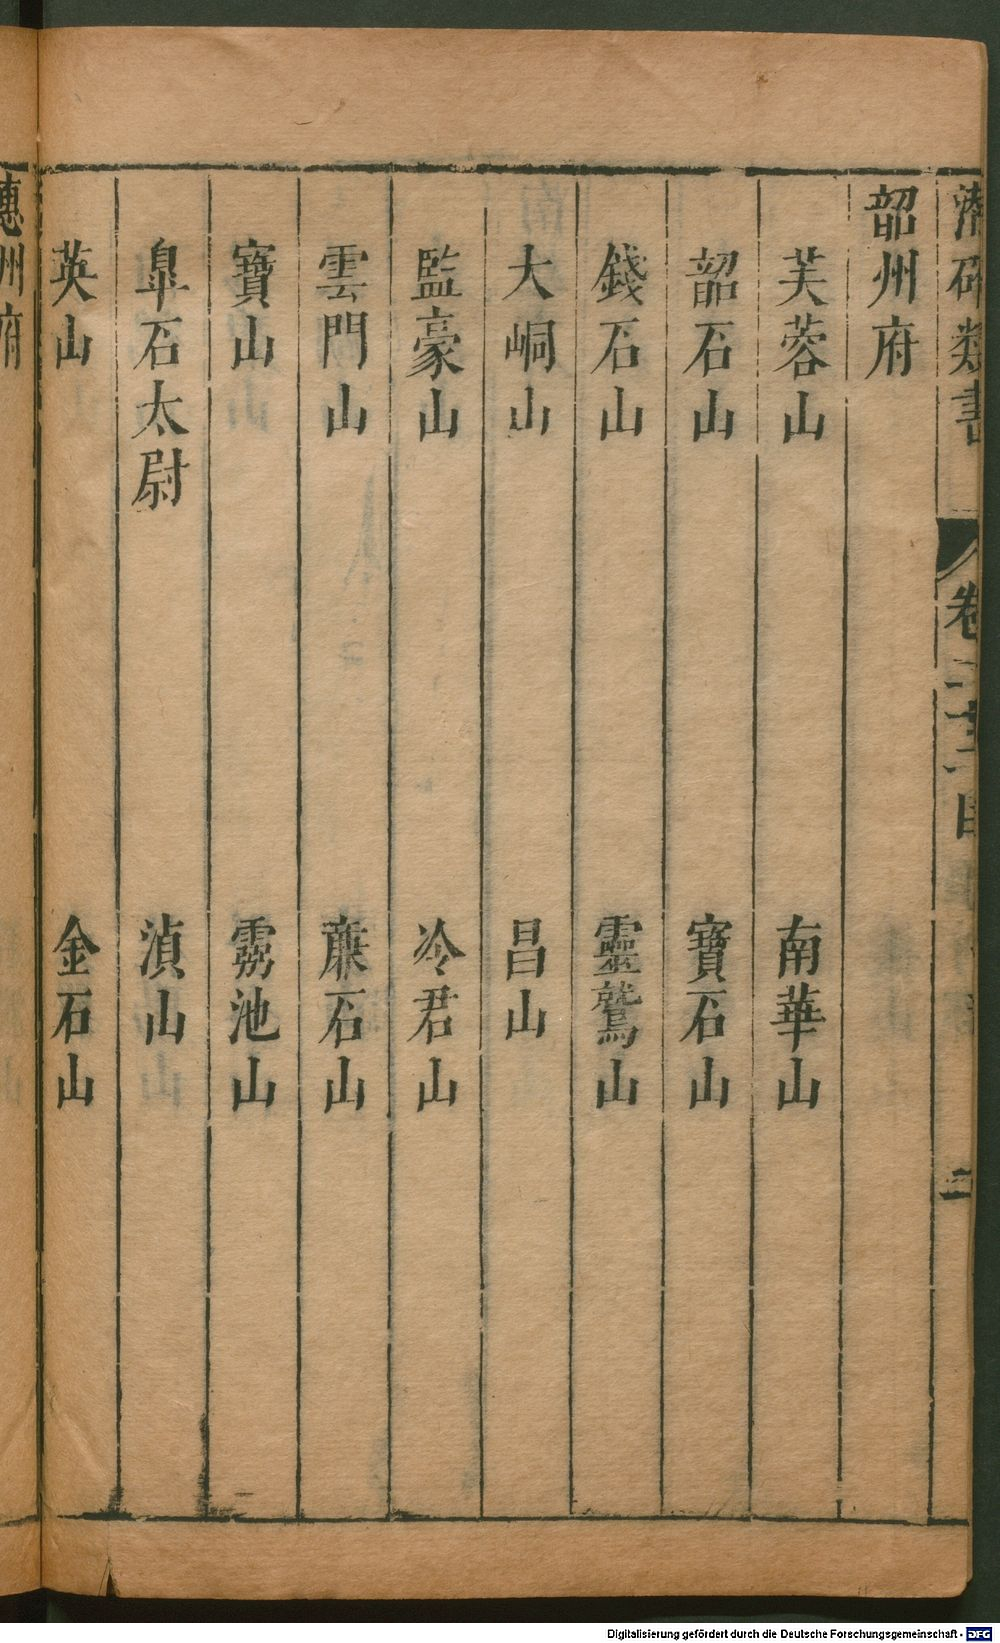 韶州府
芙蓉山 南華山
韶石山 寶石山
錢石山 靈鷲山
大峒山 昌山
監豪山 冷君山
雲門山 簾石山
寶山 霧池山
臯石太尉 湞山
英山 金石山
惠州府
類書 卷二十三目 二
Digitalisierung gefördert durch die Deutsche Forschungsgemeinschaft - DFG